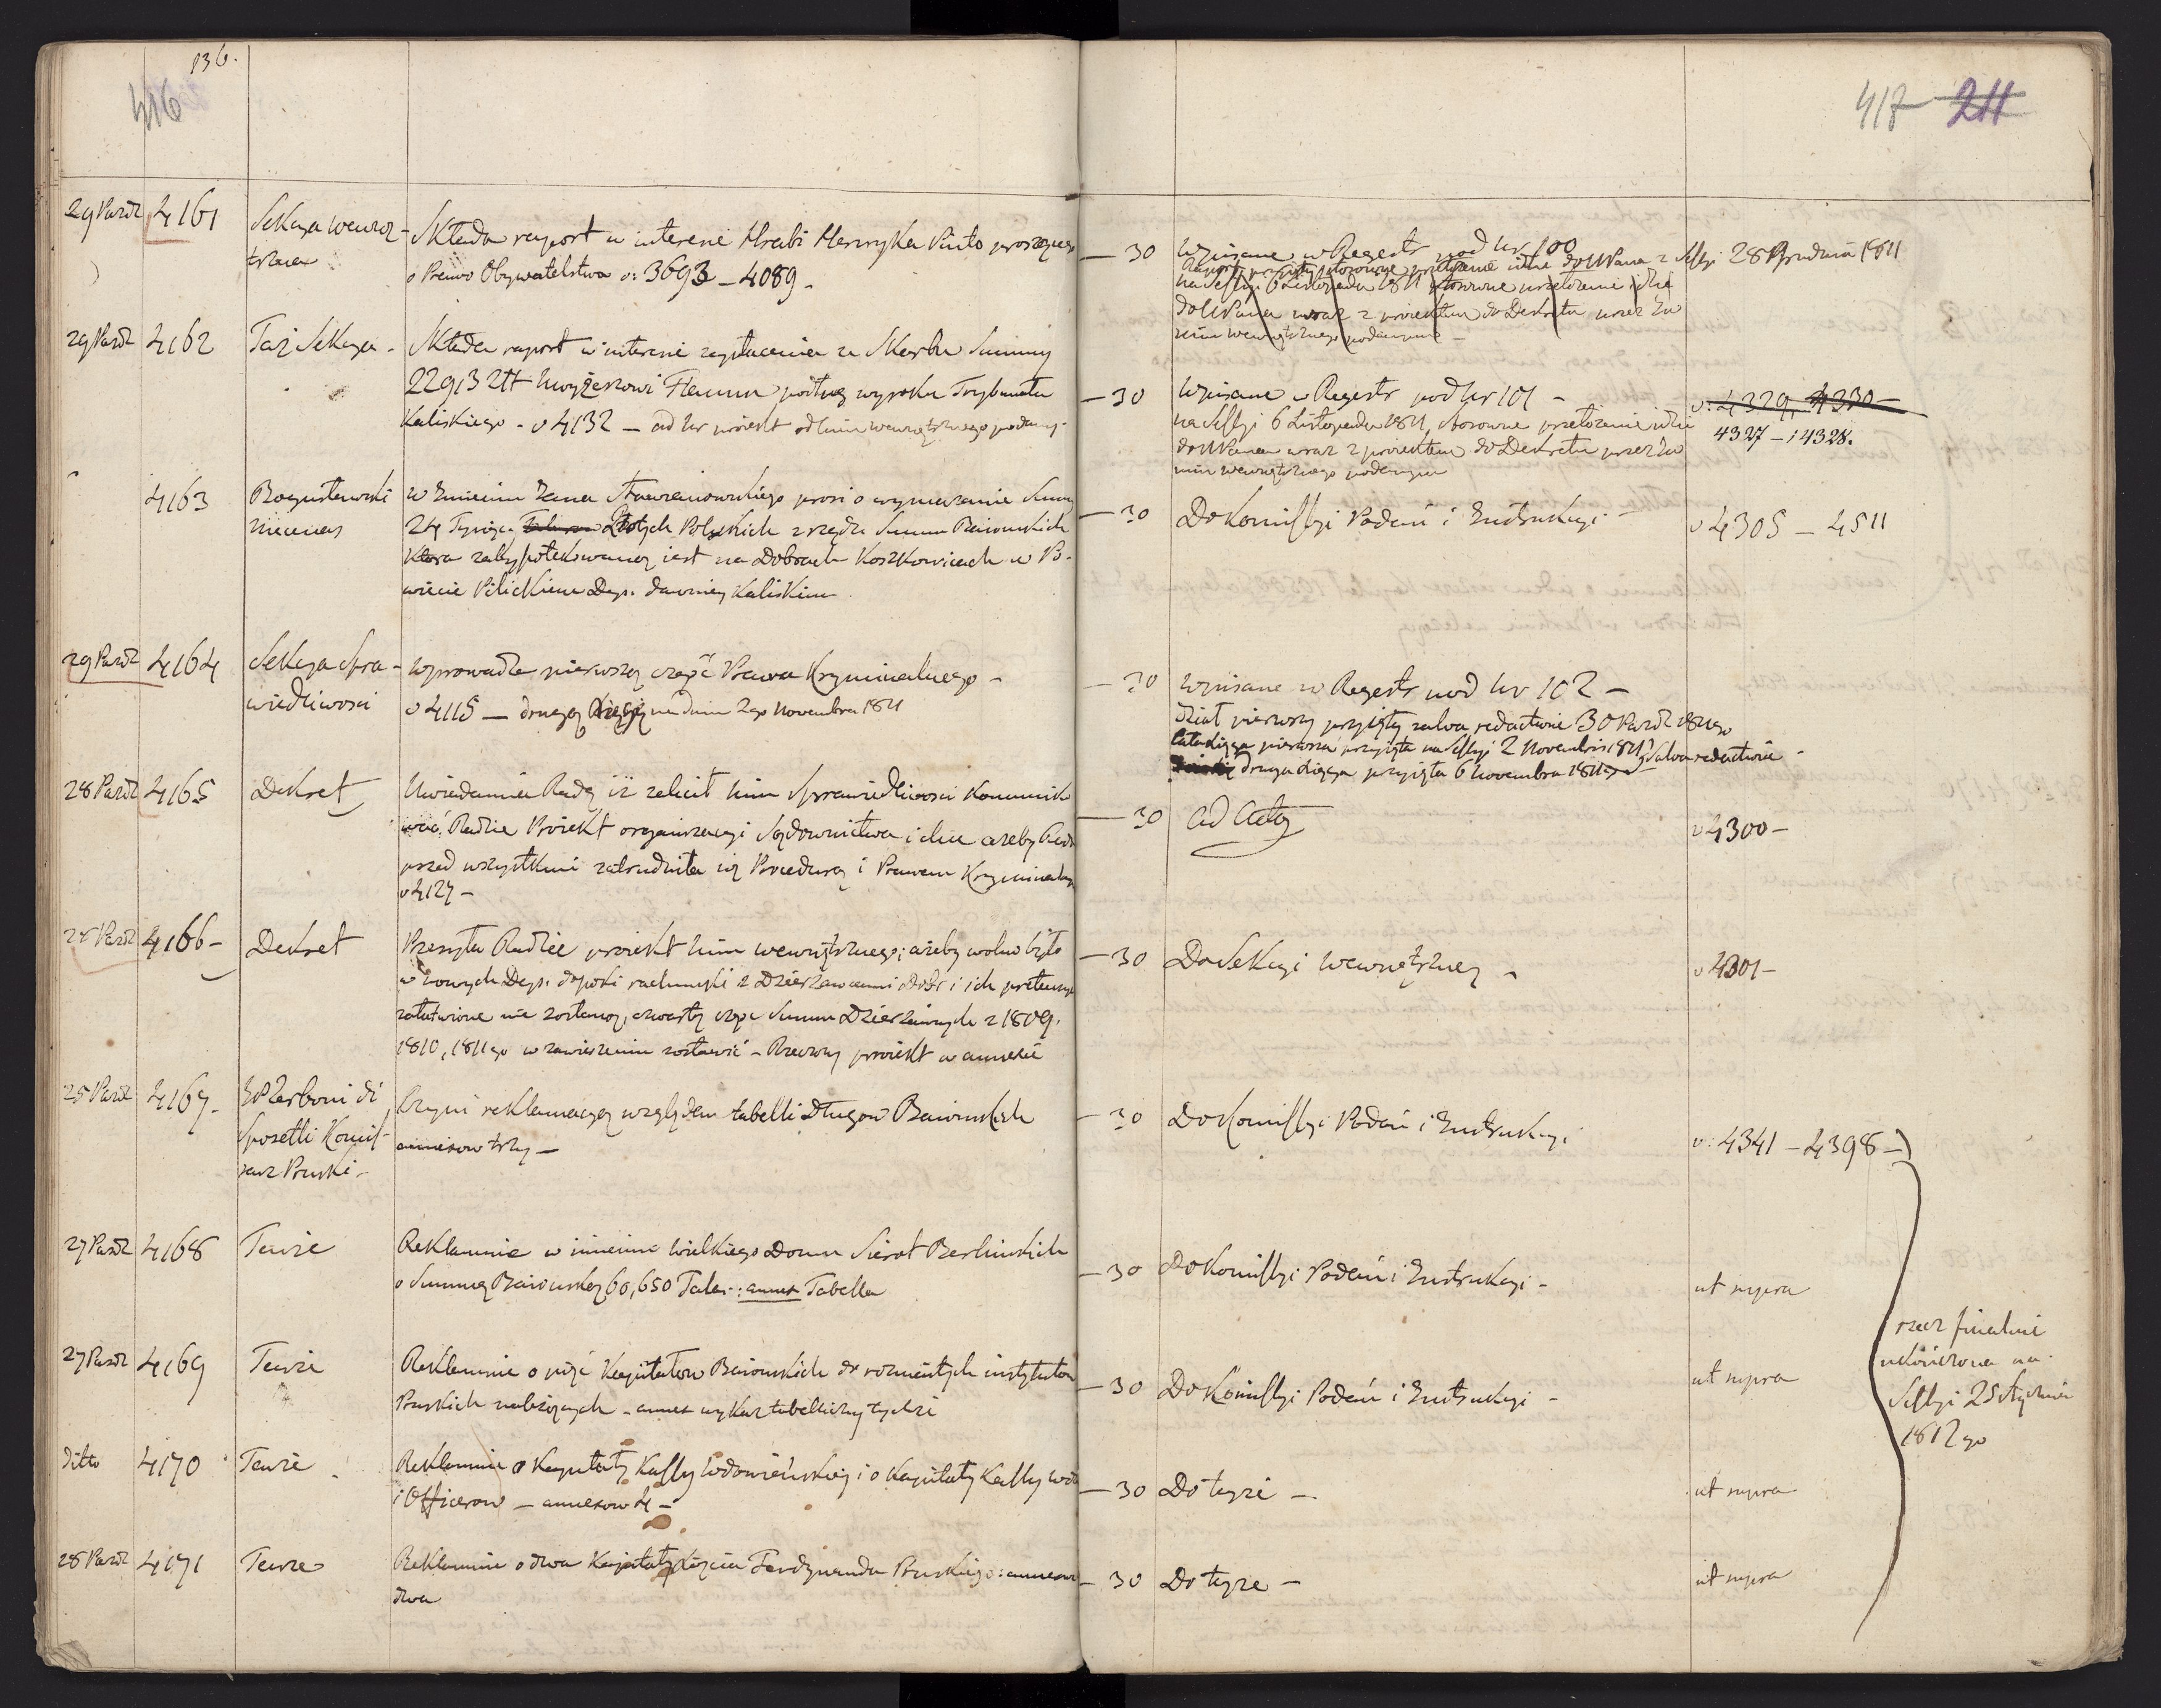 136.
416
417 211
29 Paźd 4161 Sekcya wewnę-
trzna
Składa raport w interesie Hrabi Henryka Pinto proszącego
o Prawo Obywatelstwa v: 3693 – 4089.
– 30 Wpisane w Regestr pod Nr 100
28 Grudnia 1811
na Sessyi 6 Listopada 1811 stosowne przełożenie idzie
do NPana wraz z proiektem do Dekretu przez
wewnętrznego podanym –
29 Paźd 4162 Taż Sekcya –
Składa raport w interesie zapłacenia ze Skarbu Summy
22913 złt podług wyroku Trybunału
Kaliskiego – v 4132 – ad Nr proiekt od wewnętrznego podany
– 30 Wpisane w Regestr pod Nr 101 –
na Sessyi 6 Listopada 1811, stosowne przełożenie idzie
do NPana wraz z proiektem do Dekretu przez
wewnętrznego podanym
v: 4329, 4330 –
4327 – i 4328.
4163 Bogusławski
Mecenas
w Imieniu Jana prosi o wymazanie Summy
24 Tysięcy Złotych Polskich z rzędu Summ Baiońskich
Która zahypotekowaną iest na Dobrach Koszkowicach w Po-
wiecie Pilickim Dep. dawniey Kaliskim
– 30 Do Komissyi Podań i Instrukcyi –
v 4305 – 4511
29 Paźd 4164 Sekcya Spra-
wiedliwości
Wprowadza pierwszą część Prawa Kryminalnego –
v 4115 – drugą Xięgę na dniu 2go Novembra 1811
– 30 Wpisane w Regestr pod Nr 102 –
Dział pierwszy przyięty salva redactione 30 Paźdz 1811go
cała Xięga pierwsza przyięta na Sessyi 2 Novembris 1811, Salva redactione –
druga Xięga przyięta 6 Novembra 1811
28 Paźd 4165 Dekret
Uwiadamia Radę iż zalecił Min Sprawiedliwości Kommuniko
wać Radzie Proiekt organizacyi Sądownictwa i chce ażeby Rada
przed wszystkimi zatrudniła się Procedurą i Prawem Kryminalnym
v 4127 –
– 30 ad Acta
v 4300 –
28 Paźd 4166 – Dekret
Przesyła Radzie proiekt Min wewnętrznego; ażeby wolno było
w nowych Dep. dopóki rachunki z Dzierżawcami Dóbr i ich pretensye
załatwione nie zostaną, czwartą część Summ Dzierżawnych z 1809.
1810, 1811go w zawieszeniu zostawić – Rzeczony proiekt w annexie
– 30 Do Sekcyi Wewnętrzney –
v 4301 –
25 Paźd 4167. JP Zerboni di
Sposetti Komis-
sarz Pruski –
Czyni reklamacyą względem tabelli Długów Baiońskich
annexow trzy –
– 30 Do Komissyi Podań i Instrukcyi
v: 4341 – 4398 –
27 Paźd 4168 Tenże
Reklamuie w imieniu Wielkiego Domu Sierot Berlińskich
o Summę Baiońską 60,650 Talar: annex Tabella
– 30 Do Komissyi Podań i Instrukcyi –
ut supra
27 Paźd 4169 Tenże
Reklamuie o pięć Kapitałow Baiońskich do rozmaitych instytutow
Pruskich należących – annex wykaz tabelliczny tychże
– 30 Do Komissyi Podań i Instrukcyi –
ut supra
rzecz finalnie
ukończona na
Sessyi 25 Stycznia
1812go
ditto 4170 Tenże
Reklamuie o Kapitały Kassy Wdowieńskiej i o Kapitały Kassy wdo
i Officerow – annexow 4 –
– 30 Do teyże –
ut supra
28 Paźd 4171 Tenże
Reklamuie o dwa Kapitały Xięcia Ferdynanda Pruskiego: annexow
dwa
– 30 Do teyże –
ut supra